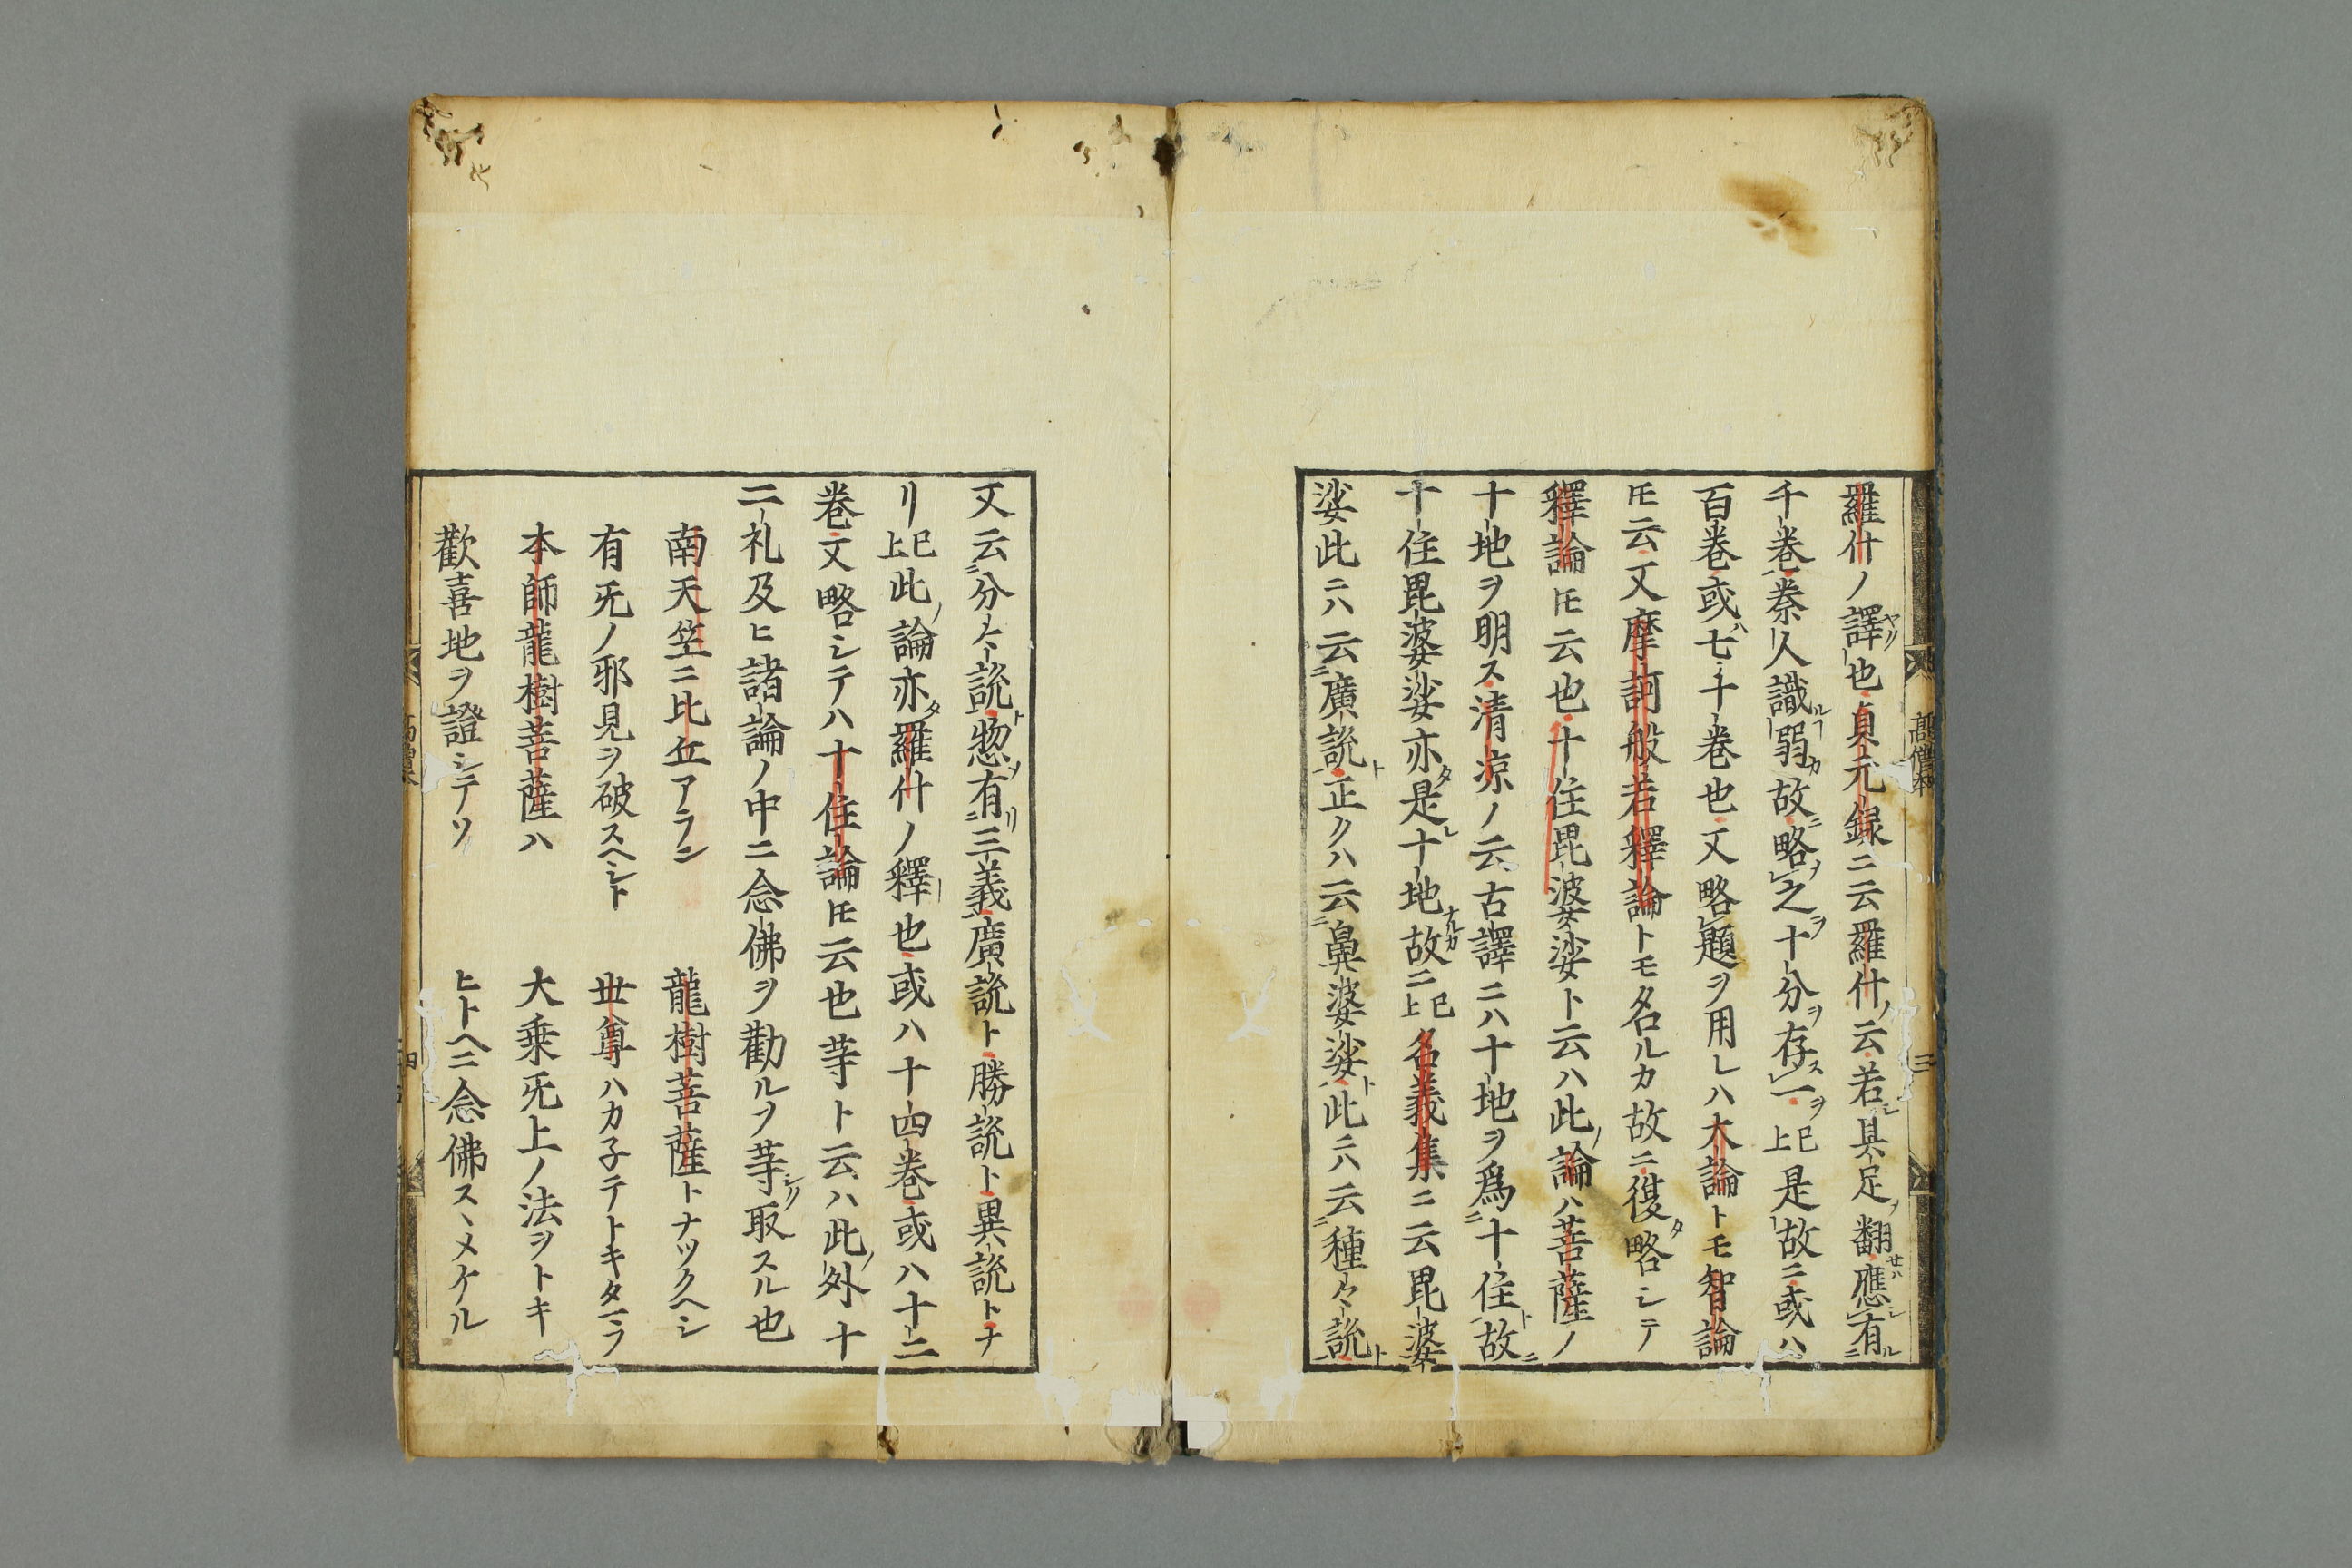 羅什ノ譯也貞元録ニ云羅什云若具足翻應有
千巻秦人識弱故略之十分存一已上是故ニ或ハ
百巻或七十巻也又略題ヲ用レハ大論トモ智論
トモ云又摩訶般若釋論トモ名ルカ故ニ復略シテ
釋論トモ云也十住毘婆娑ト云ハ此論ハ菩薩ノ
十地ヲ明ス清凉ノ云古譯ニハ十地ヲ爲十住故
十住毘婆娑亦是十地故ニ已上名義集ニ云毘婆
娑此ニハ云廣説正クハ云鼻婆娑此ニハ云種々説
又云分々説惣有三義廣説ト勝説ト異説トナ
リ已上此論亦羅什ノ釋也或ハ十四巻或ハ十二
巻文略シテハ十住論トモ云也䒭ト云ハ此外十
二礼及ヒ諸論ノ中ニ念佛ヲ勸ルヲ䒭取スル也
南天笠ニ比丘アラン 龍樹菩薩トナツクヘシ
有旡ノ邪見ヲ破スヘシト 世尊ハカ子テトキタマフ
本師龍樹菩薩ハ 大乗旡上ノ法ヲトキ
歡喜地ヲ證シテソ ヒトヘニ念佛スヽメケル